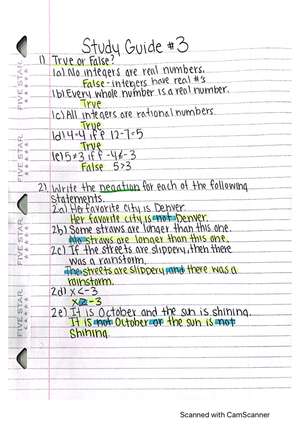 Study Guide #3
1) True or False?
1a) No integers are real numbers.
False - integers have real #s
1b) Every whole number is a real number.
True
1c) All integers are rational numbers.
True
1d) 4-4 iff 12-7=5
True
1e) 5≠3 iff -4≤-3
False 5>3
2) Write the negation for each of the following
statements.
2a) Her favorite city is Denver.
Her favorite city is not Denver.
2b) Some straws are longer than this one.
No straws are longer than this one.
2c) If the streets are slippery, then there
was a rainstorm.
The streets are slippery and there was a
rainstorm.
2d) x<-3
x≥-3
2e) It is October and the sun is shining.
It is not October or the sun is not
shining.
FIVE STAR
FIVE STAR
FIVE STAR
FIVE STAR
Scanned with CamScanner